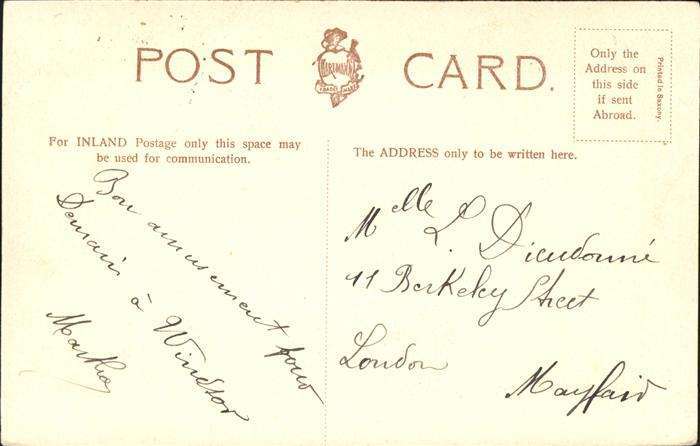 POST CARD.
HARTMANN
TRADE MARK
Only the
Address on
this side
if sent
Abroad.
Printed in Saxony.
For INLAND Postage only this space may
be used for communication.
The ADDRESS only to be written here.
Bon amusement pour
Demain à Windsor
Martha
Melle L. Dieudonné
11 Berkeley Street
London
Mayfair